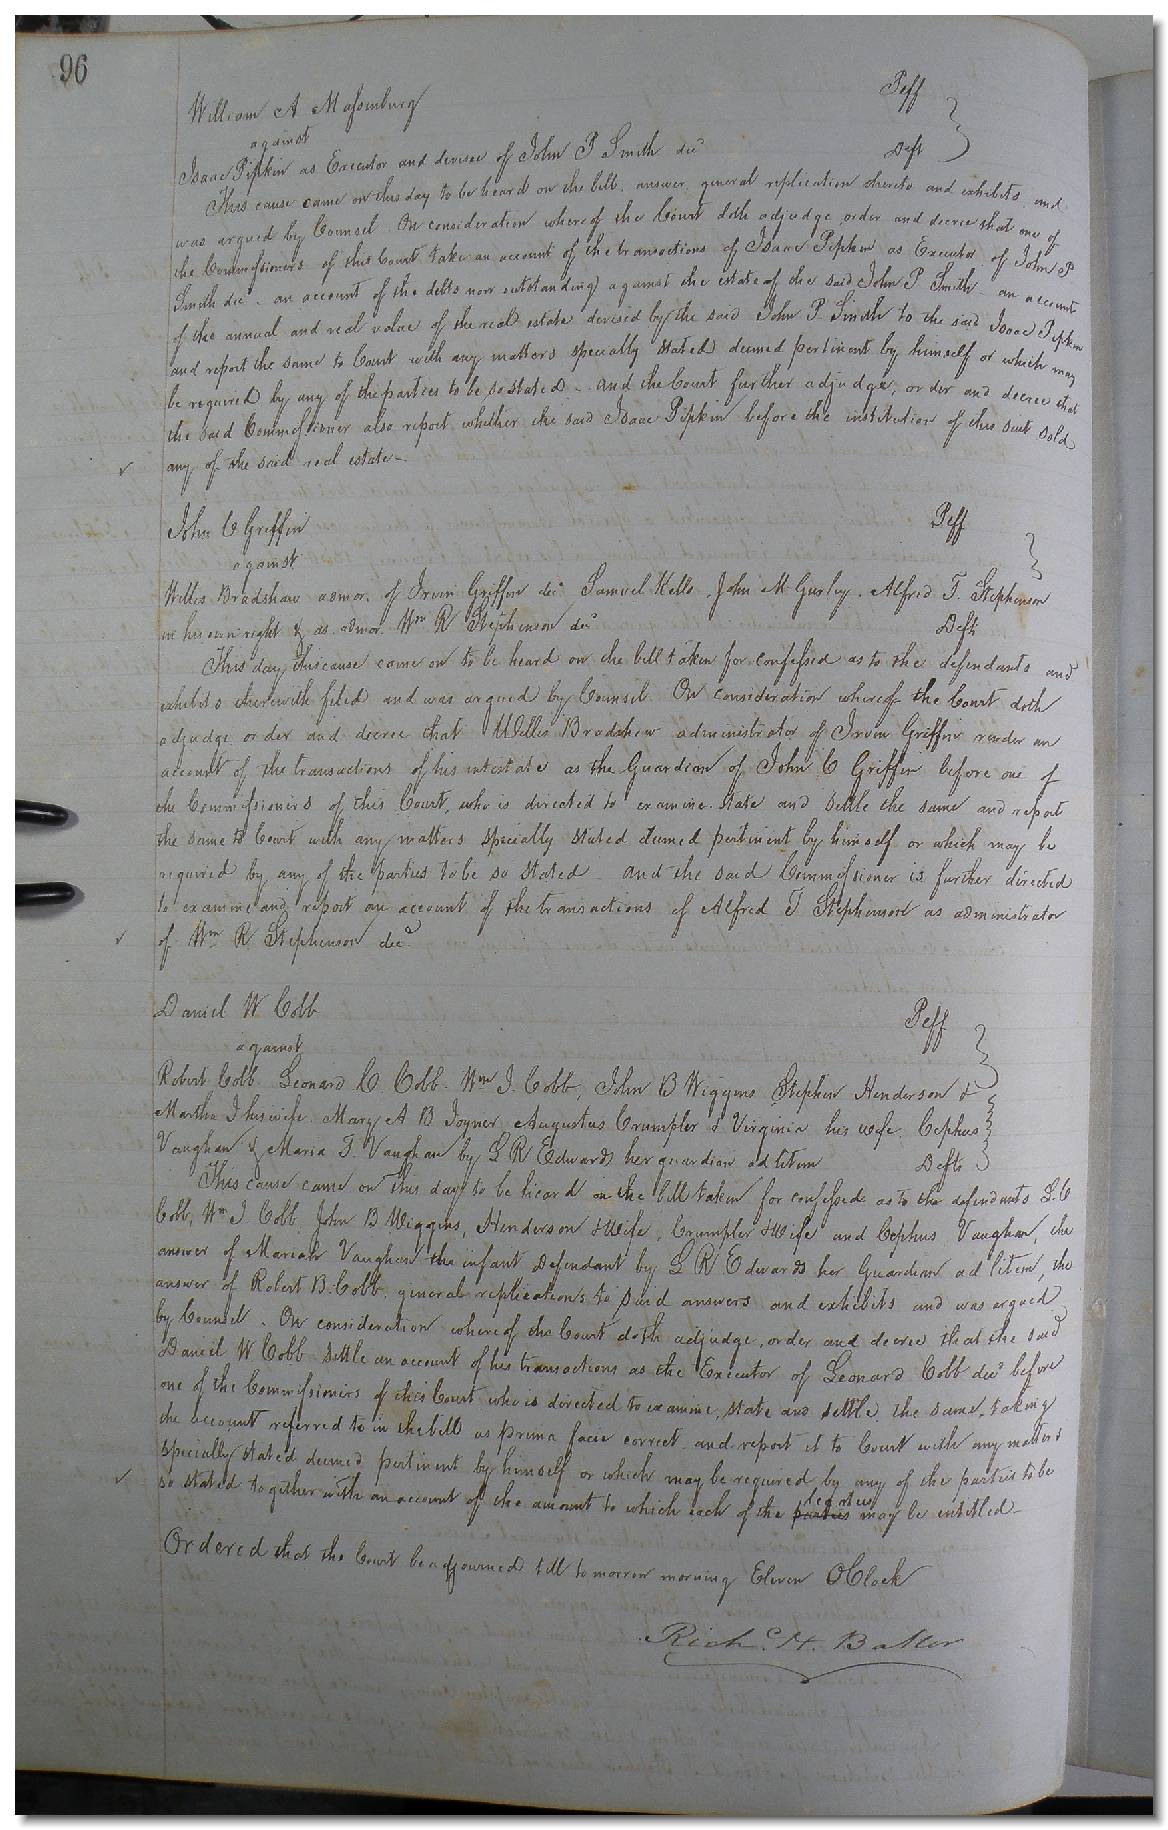 96
William A Massenburg Plff
against
Isaac Pipkin as Executor and devisee of John P Smith decd Deft
This cause came on this day to be heard on the bill, answer, general replication thereto and exhibits, and
was argued by Counsel. On consideration whereof the Court doth adjudge, order and decree that one of
the Commissioners of this Court take an account of the transactions of Isaac Pipkin as Executor of John P
Smith decd - an account of the debts now outstanding against the estate of the said John P Smith - an account
of the annual and real value of the real estate devised by the said John P. Smith to the said Isaac Pipkin
and report the same to Court with any matters specially stated deemed pertinent by himself or which may
be required by any of the parties to be so stated - and the Court further adjudge, order and decree that
the said Commissioner also report whether the said Isaac Pipkin before the institution of this suit sold
any of the said real estate -
John C Griffin Plff
against
Willis Bradshaw admor. of Irvin Griffin decd Samuel Kello, John M Gurley, Alfred T. Stephenson
in his own right & as admor. Wm R Stephenson decd Defts
This day this cause came on to be heard on the bill taken for confessed as to the defendants and
exhibits therewith filed and was argued by Counsel. On consideration whereof the Court doth
adjudge order and decree that Willis Bradshaw administrator of Irvin Griffin render an
account of the transactions of his intestate as the Guardian of John C Griffin before one of
the Commissioners of this Court, who is directed to examine state and settle the same and report
the same to Court with any matters specially stated deemed pertinent by himself or which may be
required by any of the parties to be so stated - and the said Commissioner is further directed
to examine and report an account of the transactions of Alfred T Stephenson as administrator
of Wm R Stephenson decd
Daniel W Cobb Plff
against
Robert Cobb Leonard C. Cobb. Wm J. Cobb, John B Wiggins Stephen Henderson &
Martha J his wife Mary A B Joyner Augustus Crumpler & Virginia his wife, Cephus
Vaughan & Maria T. Vaughan by L R Edwards her guardian ad litem Defts
This cause came on this day to be heard on the bill taken for confessed as to the defendants L. C
Cobb, Wm J Cobb John B Wiggins, Henderson & Wife, Crumpler & Wife and Cephus Vaughan, the
answer of Mariah Vaughan the infant Defendant by L R Edwards her Guardian ad litem, the
answer of Robert B. Cobb, general replications to said answers and exhibits and was argued
by Counsel. On consideration whereof the Court doth adjudge, order and decree that the said
Daniel W Cobb settle an account of his transactions as the Executor of Leonard Cobb decd before
one of the Commissioners of this Court who is directed to examine, state and settle the same, taking
the account referred to in the bill as prima facie correct and report it to Court with any matters
specially stated deemed pertinent by himself or which may be required by any of the parties to be
so stated together with an account of the amount to which each of the parties legatees may be entitled -
Ordered that the Court be adjourned till to morrow morning Eleven OClock
Richd. H. Baker